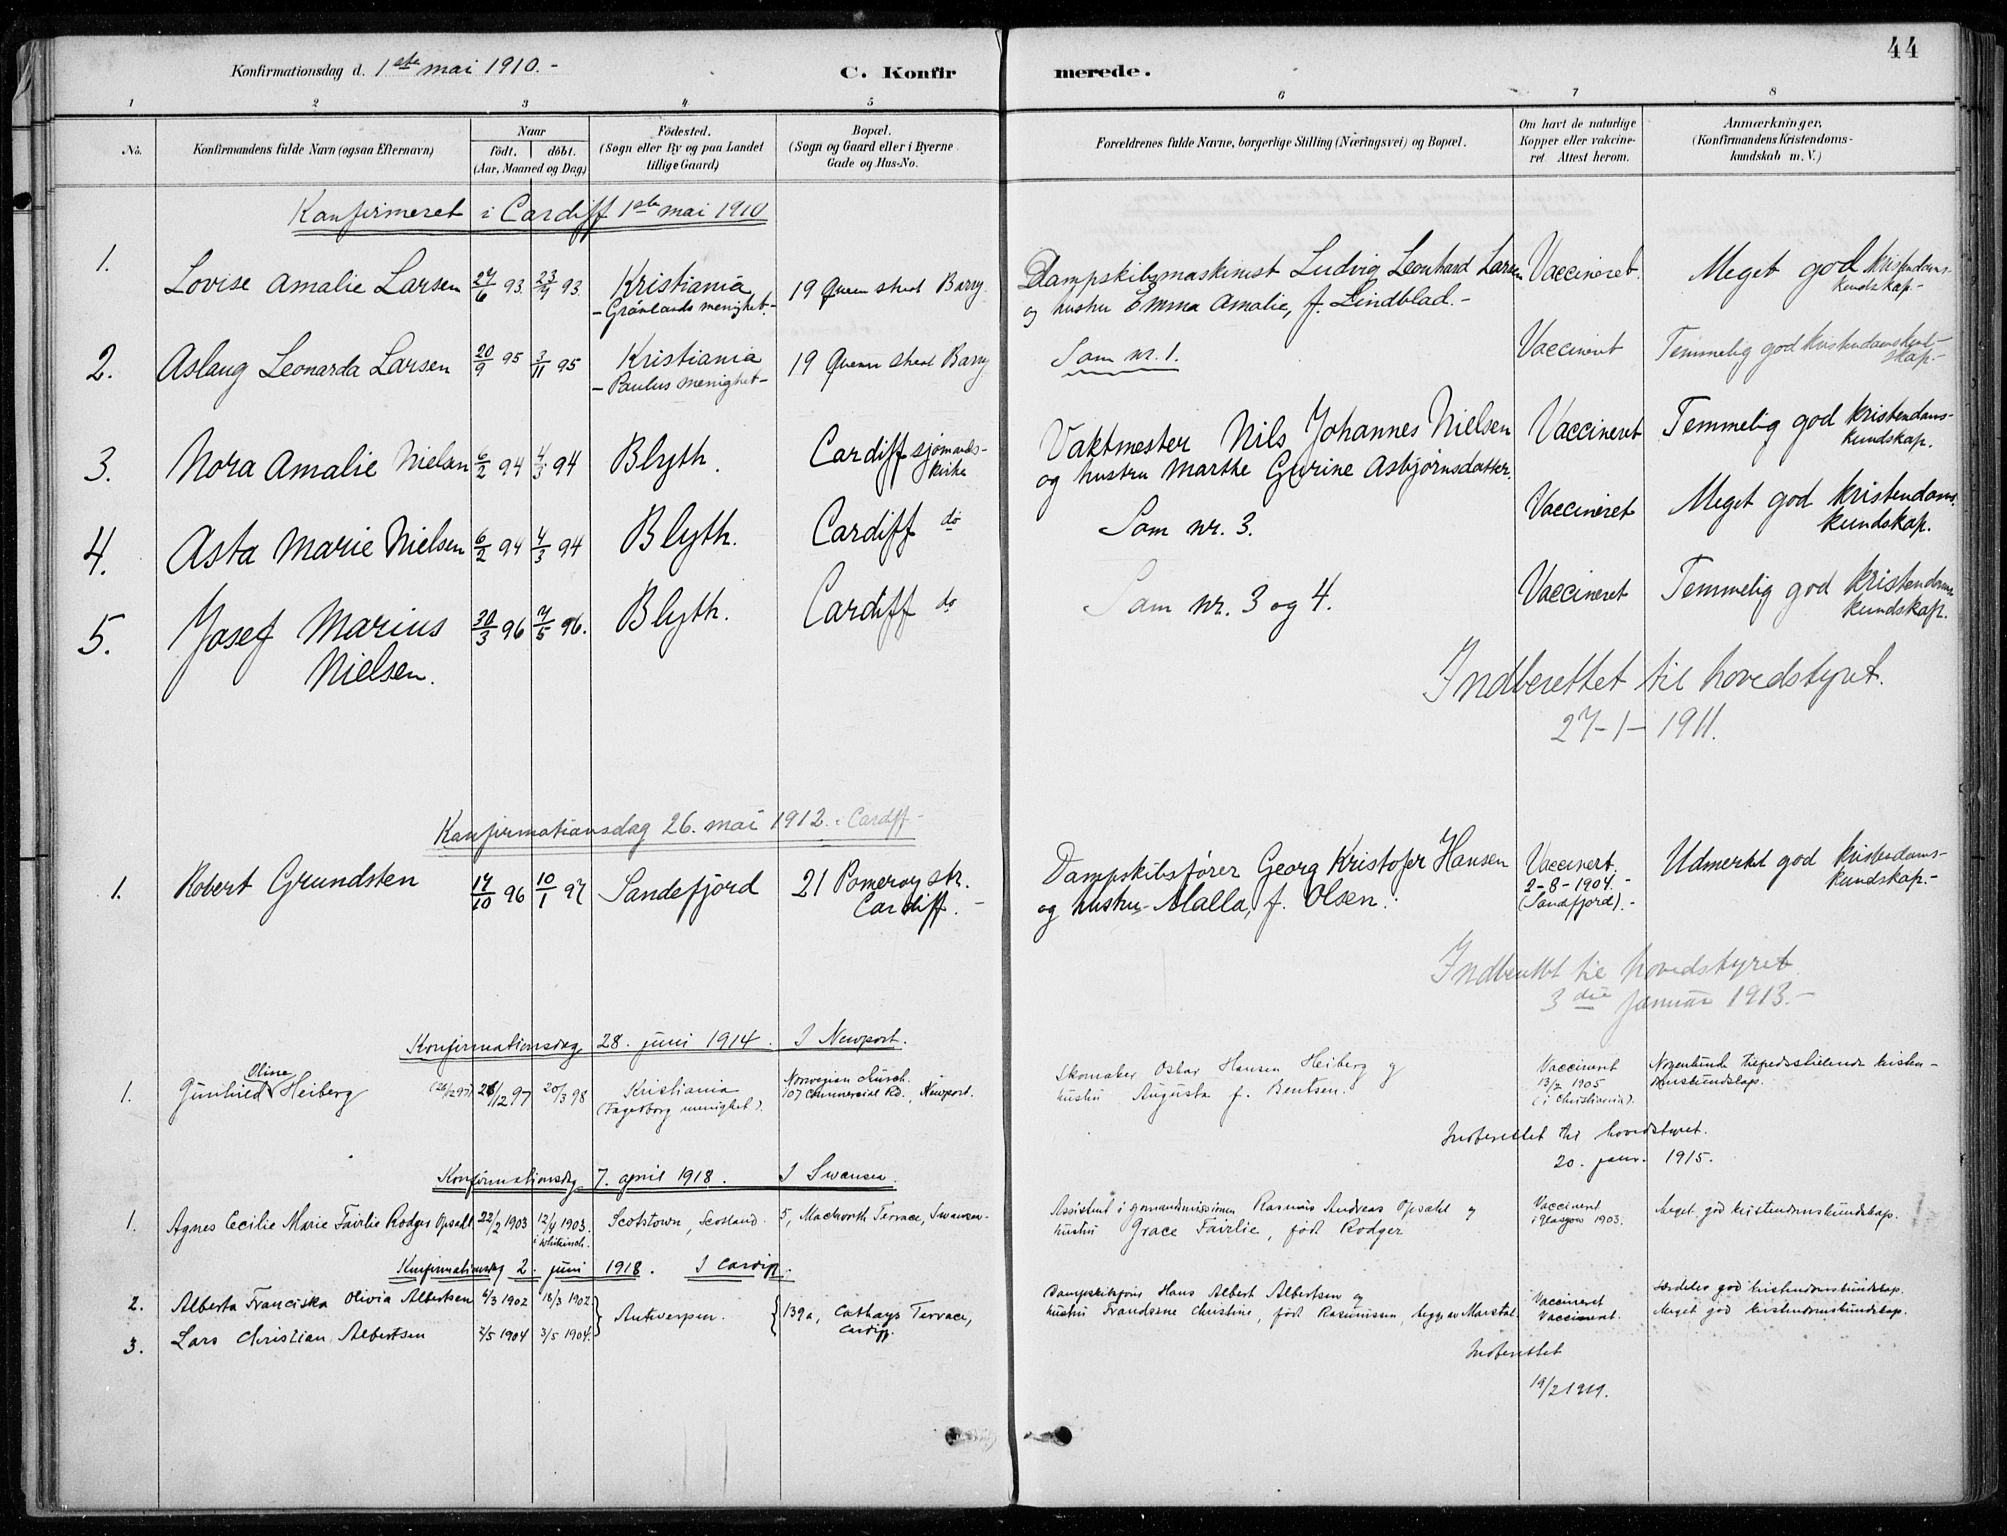 44
Konfirmationsdag d. 1ste mai 1910.-
C. Konfirmerede.
1 2 3 4 5 6 7 8
No. Konfirmandens fulde Navn (ogsaa Efternavn) Naar födt. döbt. (Aar, Maaned og Dag) Födested. (Sogn eller By og paa Landet tillige Gaard) Bopæl. (Sogn og Gaard eller i Byerne Gade og Hus-No. Forældrenes fulde Navne, borgerlige Stilling (Næringsvei) og Bopæl. Om havt de naturlige Kopper eller vakcineret Attest herom. Anmærkninger. (Konfirmandens Kristendomskundskab m. V.)
Konfirmeret i Cardiff 1ste mai 1910
1. Lovise Amalie Larsen 27/6 93. 23/9 93. Kristiania - Grönlands menighet.- 19 Queen street Barry. Dampskibsmaskinist Ludvig Leonhard Larsen og hustru Emma Amalie, f. Lindblad.- Vaccineret. Meget god kristendomskundskap.-
2. Aslaug Leonarda Larsen 20/9 95 3/11 95 Kristiania - Paulus menighet- 19 Queen street Barry Som nr. 1. Vaccineret Temmelig god kristendomskundskap.-
3. Nora Amalie Nielsen 6/2 94 4/3 94 Blyth. Cardiff sjömandskirke Vaktmester Nils Johannes Nielsen og hustru Marthe Gurine Asbjørnsdatter. Vaccineret Temmelig god kristendomskundskap.
4. Asta Marie Nielsen 6/2 94 4/3 94 Blyth. Cardiff do Som nr. 3. Vaccineret Meget god kristendomskundskap.
5. Josef Marius Nielsen. 30/3 96 7/5 96. Blyth. Cardiff do Som nr. 3 og 4. Vaccineret Temmelig god kristendomskundskap.
Indberettet til hovedstyret.
27-1-1911.
Konfirmationsdag 26. mai 1912. i Cardiff-
1. Robert Grundsten 14/10 96 10/1 97 Sandefjord 21 Pomeroy str. Cardiff.- Dampskibsfører Georg Kristofer Hansen og hustru Malla, f. Olsen. Vaccinert. 2-8-1904.- (Sandefjord).- Udmerket god kristendomskundskap.-
Indberettet til hovedstyret
3die januar 1913.-
Konfirmationsdag 28. juni 1914. I Newport.
1. Gunhild Oline Heiberg (28/12 97) 28/12 97 20/3 98 Kristiania (Fagerborg menighet). Norwegian Church. 107 Commercial Rd. Newport. Skomaker Oskar Hansen Heiberg og hustru Augusta f. Bentsen. Vaccineret 13/2 1905 (i Christiania). Nogenlunde tilfredsstillende kristendomskundskap.
Indberettet til hovedstyret.
20. janr. 1915.
Konfirmationsdag 7. april 1918. I Swansea.
1. Agnes Cecilie Marie Fairlie Rodger Opsahl 22/2 1903 12/4 1903. i Whiteinch. Scotstown, Scotland. 5, Mackworth Terrace, Swansea. Assistent i sjomandsmissionen Rasmus Andreas Opsahl og hustru Grace Fairlie, født Rodger Vaccineret i Glasgow 1903. Meget god kristendomskundskap.
Konfirmationsdag 2. juni 1918. I Cardiff.
2. Alberta Franciska Olivia Albertsen 6/3 1902 18/3 1902 Antwerpen. 139a, Cathays Terrace, Cardiff. Dampskibsförer Hans Albert Albertsen og hustru Frandsine Christine, født Rasmussen, begge av Marstal. Vaccineret Særdeles god kristendomskundskap.
3. Lars Christian Albertsen 2/5 1904 3/5 1904. Vaccineret. Meget god kristendomskundskap.
Indberettet
19/2 1919.